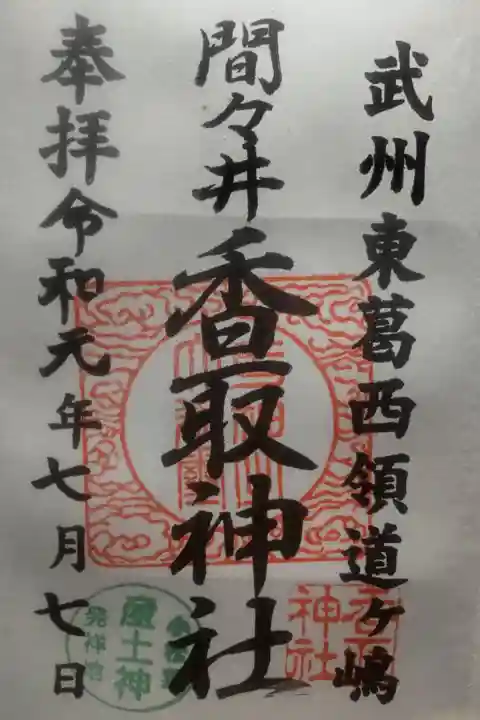 武州東葛西領道ヶ嶋
間々井香取神社
奉拝令和元年七月七日
香取
神社
産土神
発祥地